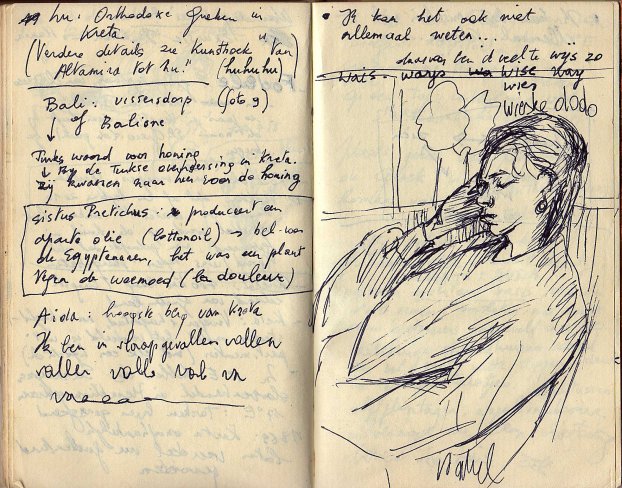 nu: Orthodoxe Grieken in
Kreta
(Verdere details zie Kunsthoek "Van
Altamira tot nu." (huhuhu)
Bali: vissersdorp (foto 9)
↓ of Balione
Turks woord voor honing
↓ Bij de Turkse overheersing in Kreta.
zij kwamen naar hier voor de honing
Sistus Preticus: produceert een
aparte olie (lottonoil) → bel. voor
de Egyptenaren, het was een plant
tegen de weemoed (la douleur)
Aida: hoogste berg van Kreta
Ik ben in slaapgevallen vallen
vallen valle val vn
• Ik kan het ook niet
allemaal weten...
daarvoor ben d veel te wijs zo
wais - warys wa wise way
wies
wieske dodo